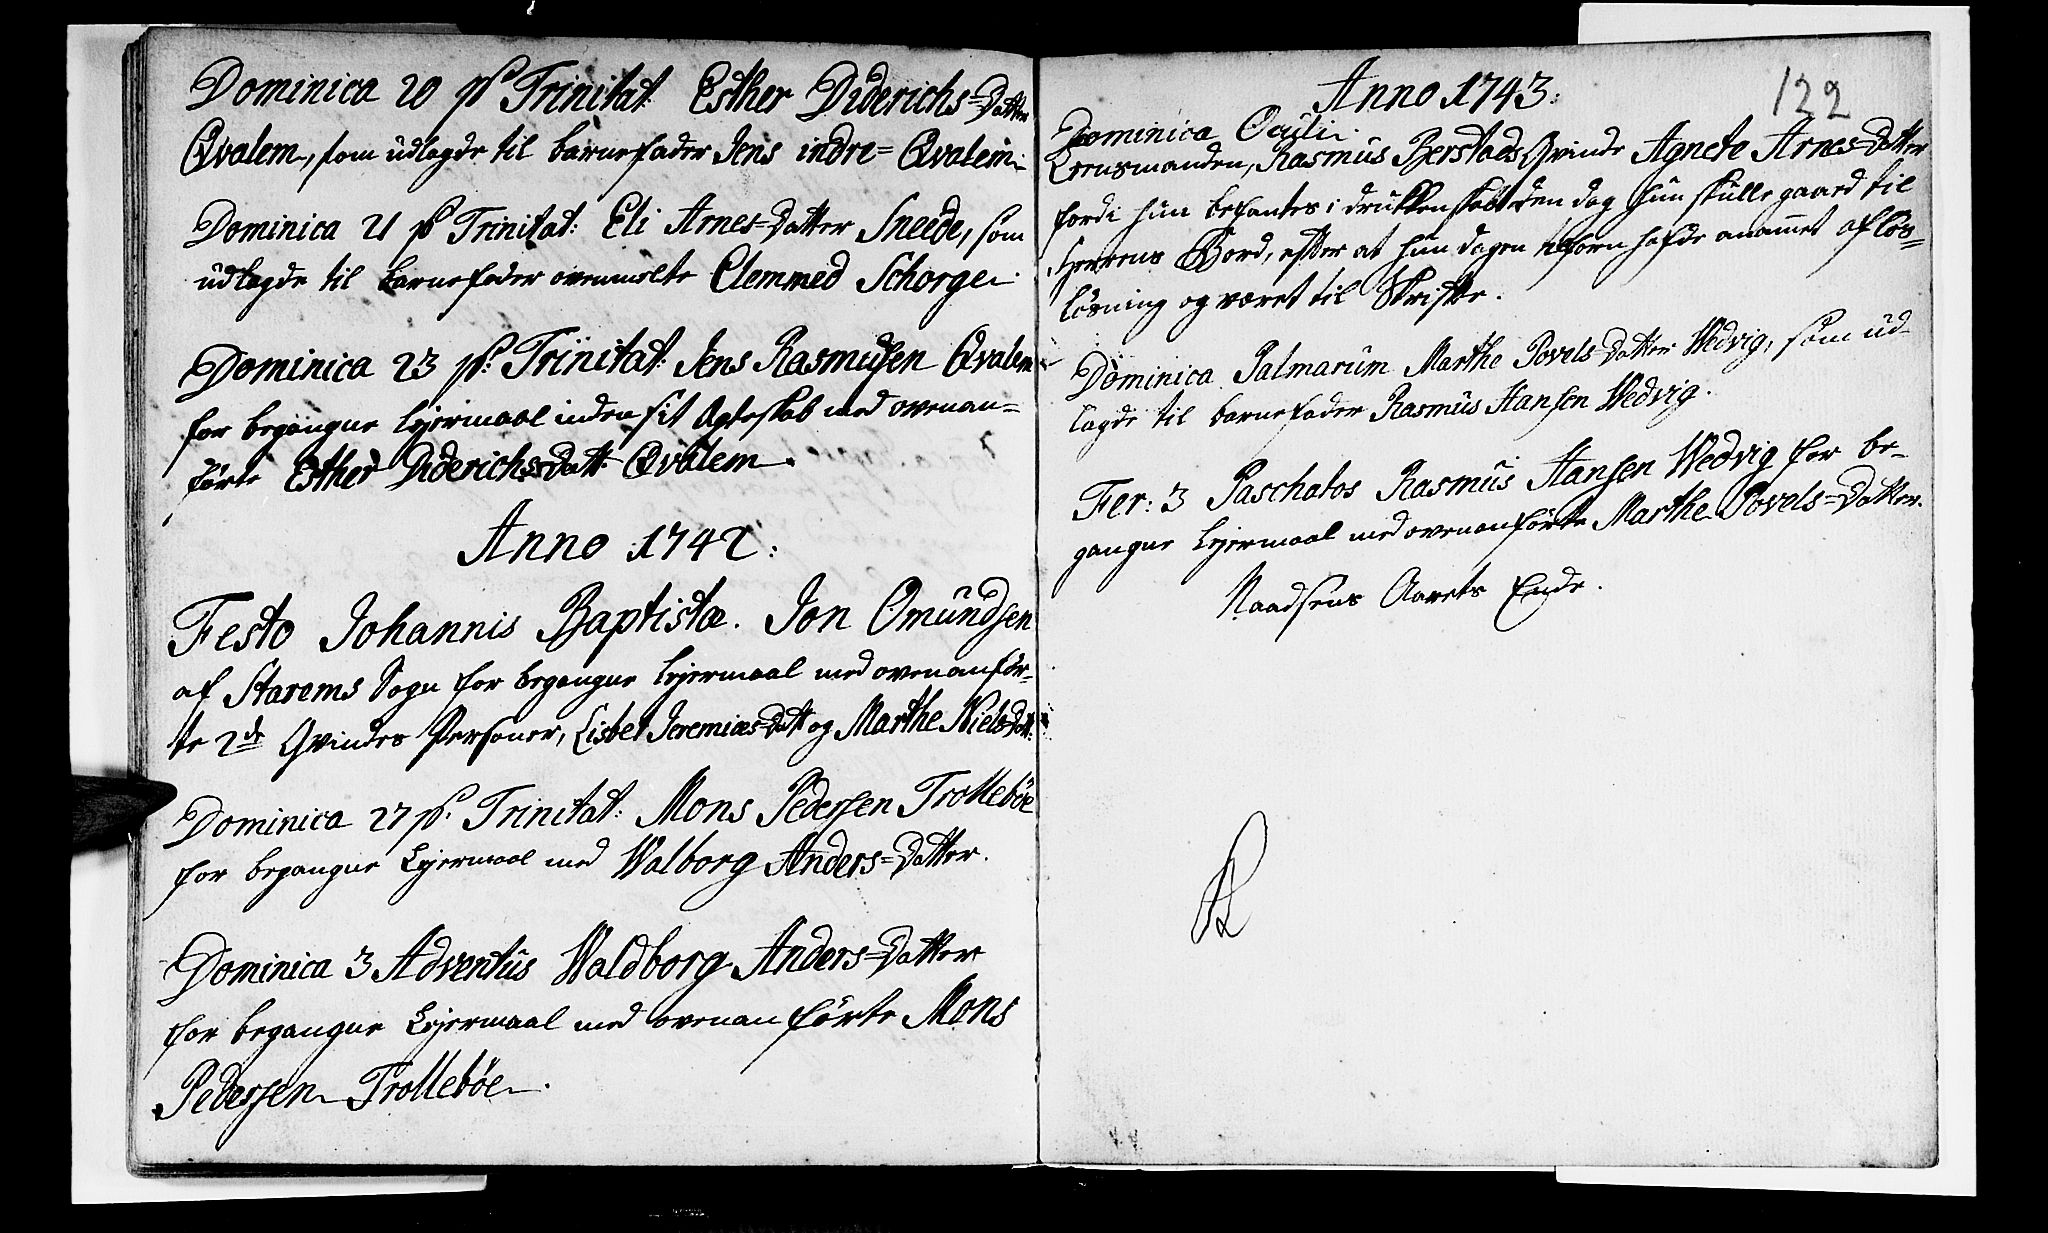 Dominica 20 p: Trinitat: Esther Diderichs=Datter
Qvalem, som udlagde til barnefader Jens indre=Qvalem.
Dominica 21 p: Trinitat: Eli Arnes=Datter Sneede, som
udlagde til barnefader ovenmelte Clemmed Schorge.
Dominica 23 p: Trinitat: Jens Rasmusen Qvalem
for begangne Lejermaal inden sit Egteskab med ovenan=
førte Esther Diderichs=Datt: Qvalem.
Anno 1742:
Festo Johannis Baptistæ. Jon Omundsen
af Starems Sogn for begangne Lejermaal med ovenanför=
te 2de Qvindes Personer, Lisbet Jeremiæs=Datt og Marthe Niels=Datt:
Dominica 27 p: Trinitat: Mons Pedersen Trollebøe
for begangne Lejermaal med Walborg Anders=Datter.
Dominica 3 Adventus Waldborg Anders=Datter
for begangne Lejermaal med ovenanförte Mons
Pedersen Trollebøe.
122
Anno 1743:
Dominica Oculi.
Lensmanden, Rasmus Berstads Qvinde Agnete Arnes=Datter
fordi hun befantes i drukkenskab den dag hun skulle gaaed til
Herrens Bord, efter at hun dagen tilforn hafde anammet aflös=
lösning og været til Skrifte.
Dominica Palmarum Marthe Povels=Datter Wedvig, som ud=
lagde til barnefader Rasmus Hansen Wedvig.
Fer: 3 Paschatos Rasmus Hansen Wedvig for be=
gangne Lejermaal med ovenanförte Marthe Povels=Datter.
Naadsens Aarets Ende.